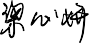 梁心妍